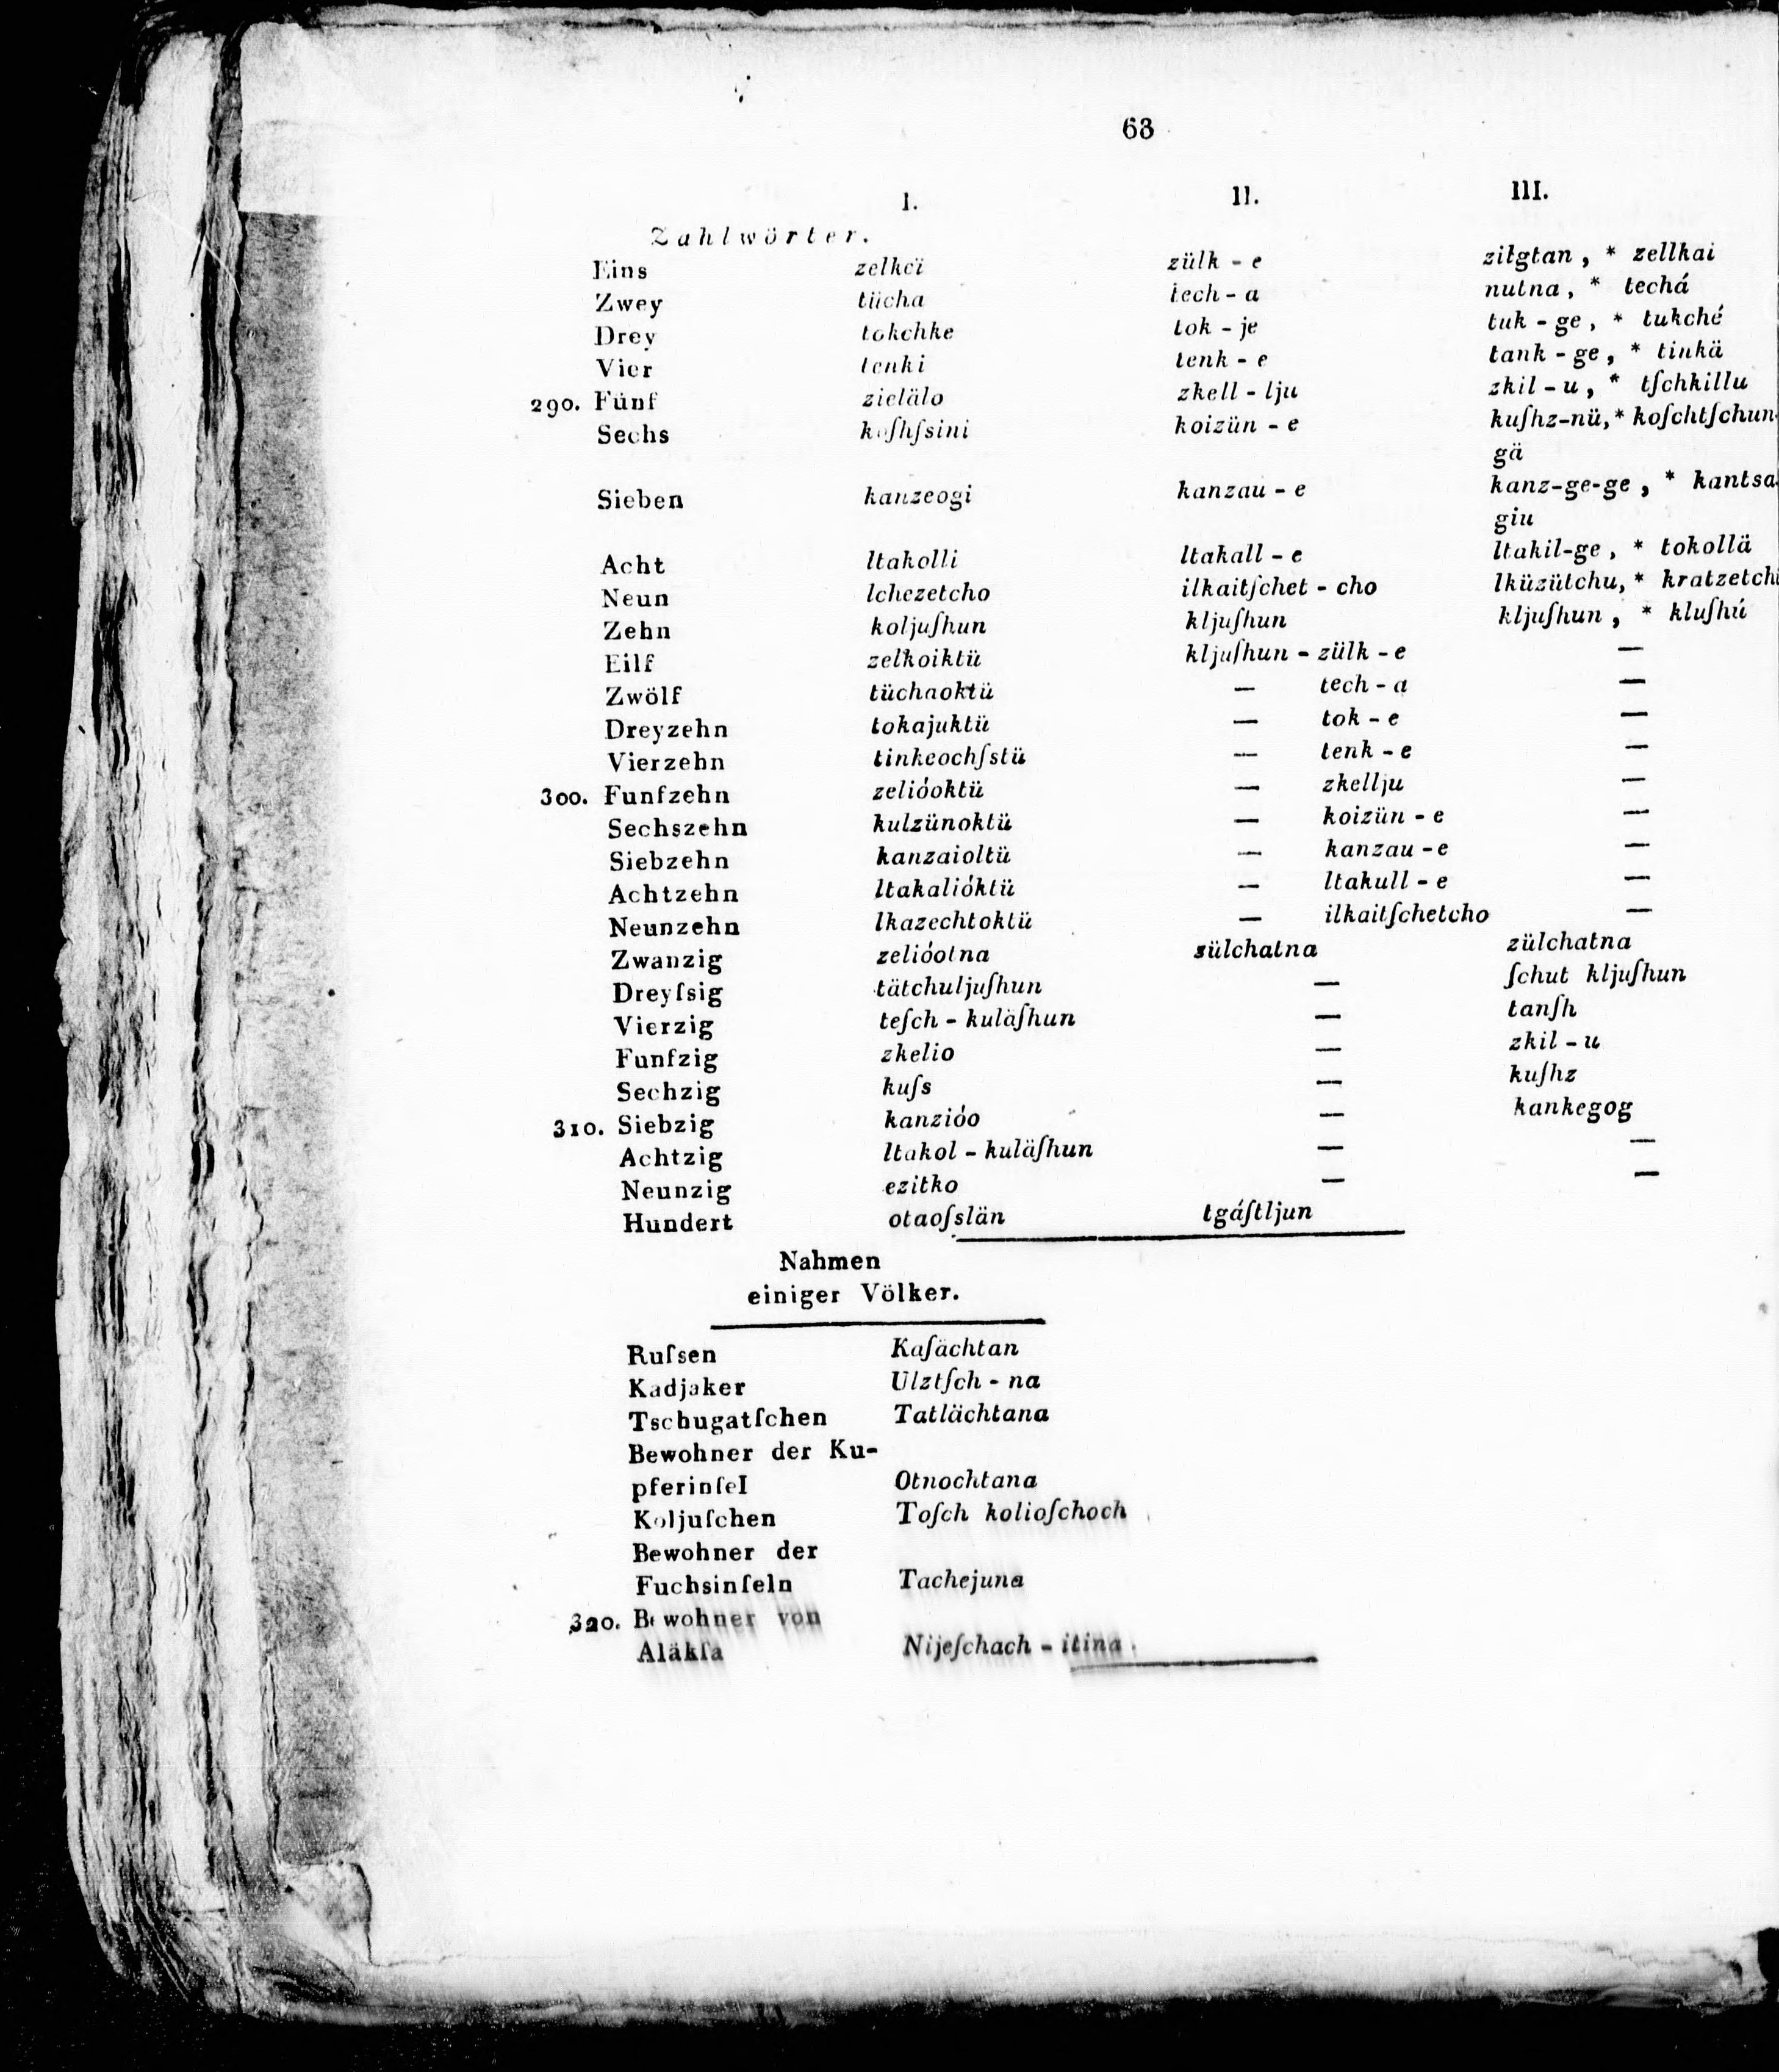 68
I. II. III.
Zahlwörter.
Eins zelkei zülk - e zilgtan, * zellkai
Zwey tücha tech - a nutna, * techá
Drey tokchke tok - je tuk - ge, * tukché
Vier tenki tenk - e tank - ge, * tinkä
290. Fünf zielälo zkell - lju zkil - u, * tſchkillu
Sechs koſhſsini koizün - e kuſhz-nü, * koſchtſchun-
gä
Sieben kanzeogi kanzau - e kanz-ge-ge, * kantsa
giu
Acht ltakolli ltakall - e ltakil-ge, * tokollä
Neun lchezetcho ilkaitſchet - cho lküzütchu, * kratzetch
Zehn koljuſhun kljuſhun kljuſhun, * kluſhú
Eilf zelkoiktü kljuſhun - zülk - e —
Zwölf tüchaoktü — tech - a —
Dreyzehn tokajuktü — tok - e —
Vierzehn tinkeochſstü — tenk - e —
300. Funfzehn zelióoktü — zkellju —
Sechszehn kulzünoktü — koizün - e —
Siebzehn kanzaioltü — kanzau - e —
Achtzehn ltakalióktü — ltakull - e —
Neunzehn lkazechtoktü — ilkaitſchetcho —
Zwanzig zelióotna sülchatna zülchatna
Dreyſsig tätchuljuſhun — ſchut kljuſhun
Vierzig teſch - kuläſhun — tanſh
Funfzig zkelio — zkil - u
Sechzig kuſs — kuſhz
310. Siebzig kanzióo — kankegog
Achtzig ltakol - kuläſhun — —
Neunzig ezitko — —
Hundert otaoſslän tgáſtljun
Nahmen
einiger Völker.
Ruſsen Kaſächtan
Kadjaker Ulztſch - na
Tschugatſchen Tatlächtana
Bewohner der Ku-
pferinſel Otnochtana
Koljuſchen Toſch kolioſchoch
Bewohner der
Fuchsinſeln Tachejuna
320. Bewohner von
Aläkſa Nijeſchach - itina.